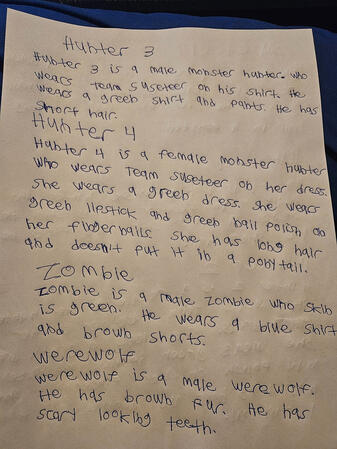 Hunter 3
Hunter 3 is a male monster hunter. who
wears team suseteer on his shirt. He
wears a green shirt and pants. He has
short hair.
Hunter 4
Hunter 4 is a female monster hunter
who wears team suseteer on her dress.
She wears a green dress. She wears
green lipstick and green nail polish on
her fingernails She has long hair
and doesn't put it in a ponytail.
Zombie
Zombie is a male zombie who skin
is green. He wears a blue shirt
and brown shorts.
Werewolf
werewolf is a male werewolf.
He has brown fur. He has
scary looking teeth.